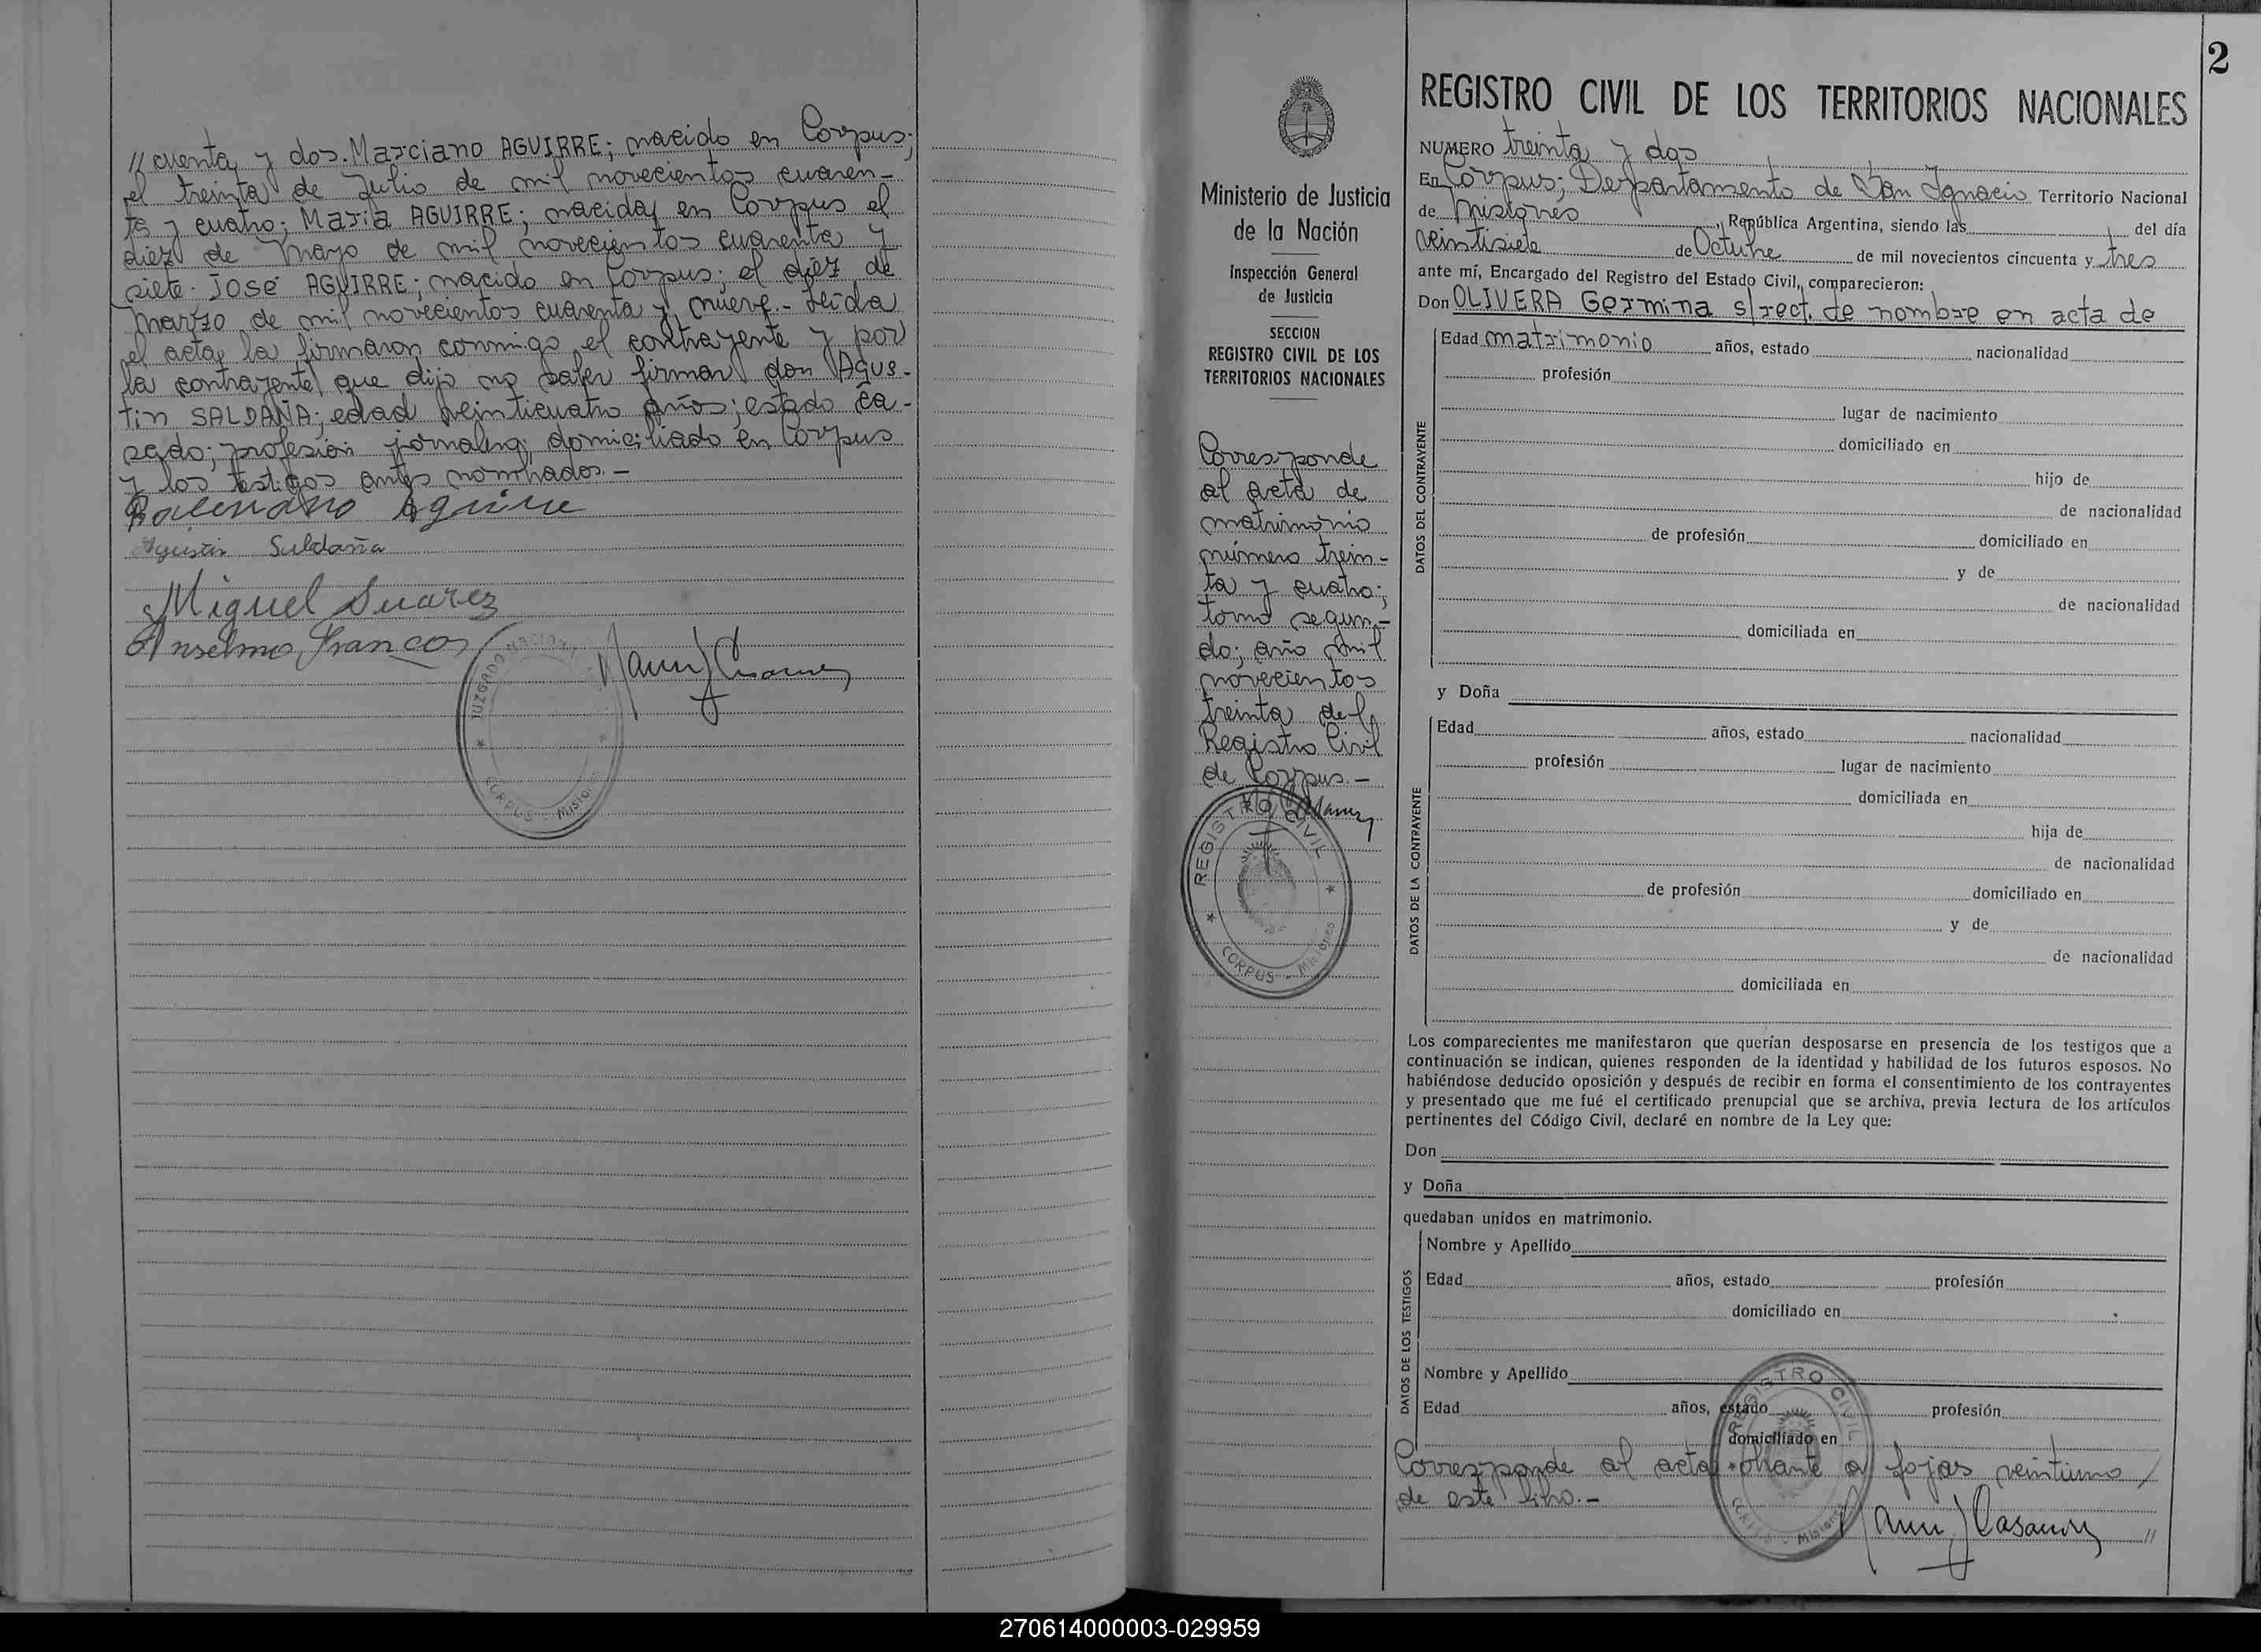 // cuenta y dos. Marciano AGUIRRE; nacido en Corpus;
el treinta de Julio de mil novecientos cuaren-
ta y cuatro; Maria AGUIRRE; nacida en Corpus el
diez de Mayo de mil novecientos cuarenta y
siete. José AGUIRRE; nacido en Corpus; el diez de
Marzo de mil novecientos cuarenta y nueve.- Leida
el acta, la firmaron conmigo el contrayente y por
la contrayente que dijo no saber firmar don Agus-
tin SALDAÑA; edad veinticuatro años; estado ca-
sado; profesión jornalero; domiciliado en Corpus
y los testigos antes nombrados.-
Aguirre
Agustin Saldaña
Miguel Suarez
Anselmo Franco
JUZGADO NACIONAL
CORPUS - Misiones
Ministerio de Justicia
de la Nación
Inspección General
de Justicia
SECCION
REGISTRO CIVIL DE LOS
TERRITORIOS NACIONALES
Corresponde
al acta de
matrimonio
número trein-
ta y cuatro;
tomo segun-
do; año mil
novecientos
treinta del
Registro Civil
de Corpus.-
REGISTRO CIVIL
CORPUS - Misiones
2
REGISTRO CIVIL DE LOS TERRITORIOS NACIONALES
NUMERO treinta y dos
En Corpus; Departamento de San Ignacio Territorio Nacional
de Misiones, República Argentina, siendo las del día
veintisiete de Octubre de mil novecientos cincuenta y tres
ante mí, Encargado del Registro del Estado Civil, comparecieron:
Don OLIVERA Germina s/rect. de nombre en acta de
Edad matrimonio años, estado nacionalidad
profesión
lugar de nacimiento
domiciliado en
hijo de
de nacionalidad
de profesión domiciliado en
y de
de nacionalidad
domiciliada en
DATOS DEL CONTRAYENTE
y Doña
Edad años, estado nacionalidad
profesión lugar de nacimiento
domiciliada en
hija de
de nacionalidad
de profesión domiciliado en
y de
de nacionalidad
domiciliada en
DATOS DE LA CONTRAYENTE
Los comparecientes me manifestaron que querían desposarse en presencia de los testigos que a
continuación se indican, quienes responden de la identidad y habilidad de los futuros esposos. No
habiéndose deducido oposición y después de recibir en forma el consentimiento de los contrayentes
y presentado que me fué el certificado prenupcial que se archiva, previa lectura de los artículos
pertinentes del Código Civil, declaré en nombre de la Ley que:
Don
y Doña
quedaban unidos en matrimonio.
Nombre y Apellido
Edad años, estado profesión
domiciliado en
Nombre y Apellido
Edad años, estado profesión
domiciliado en
DATOS DE LOS TESTIGOS
Corresponde al acta obrante a fojas veintiuno
de este libro.-
REGISTRO CIVIL
CORPUS - Misiones
//
270614000003-029959